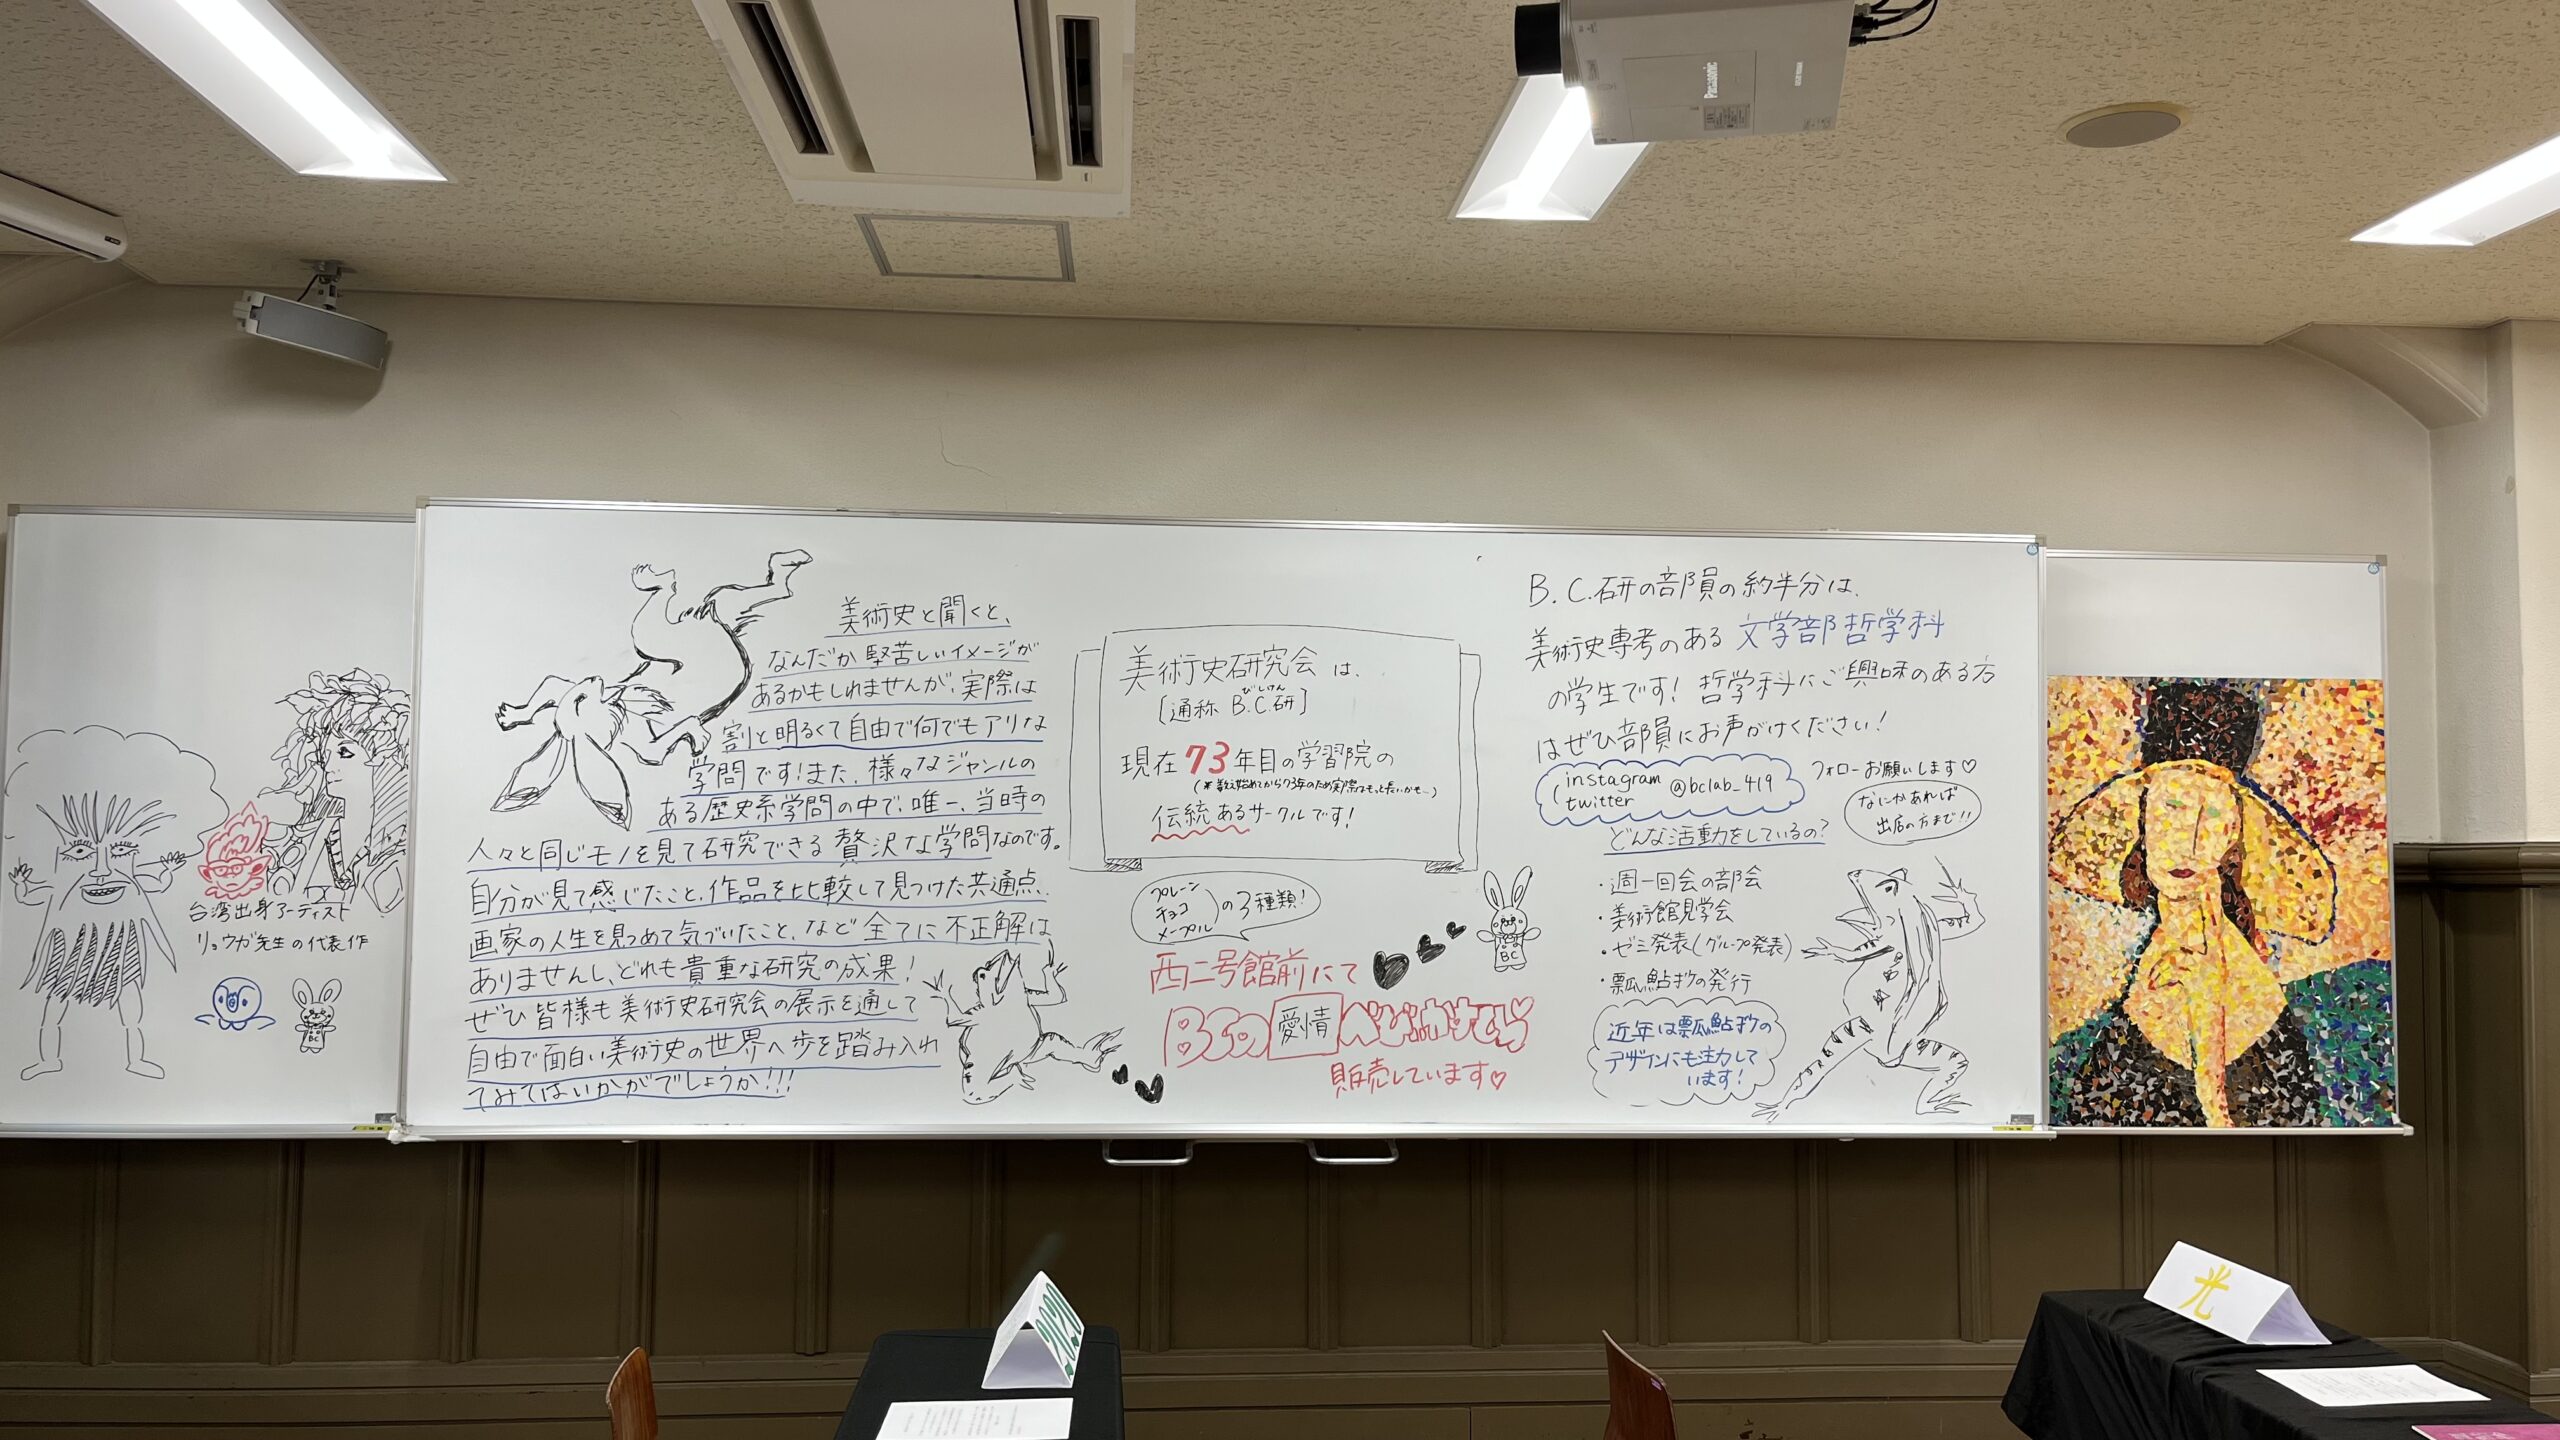 Panasonic
台湾出身アーティスト
リョウガ先生の代表作
BC
美術史と聞くと、
なんだか堅苦しいイメージが
あるかもしれませんが、実際は
割と明るくて自由で何でもアリな
学問です!また、様々なジャンルの
ある歴史系学問の中で、唯一、当時の
人々と同じモノを見て研究できる贅沢な学問なのです。
自分が見て感じたこと、作品を比較して見つけた共通点、
画家の人生を見つめて気づいたこと、など全てに不正解は
ありませんし、どれも貴重な研究の成果!
ぜひ皆様も美術史研究会の展示を通して
自由で面白い美術史の世界へ歩を踏み入れ
てみてはいかがでしょうか!!!
美術史研究会は、
[通称 B.C.研]
びしけん
現在73年目の学習院の
(*数え始めてから73年のため実際はもっと長いかも…)
伝統あるサークルです!
プレーン
チョコ
メープル
の3種類!
西二号館前にて
BCの愛情ベビーカステラ
販売しています♡
BC
B.C.研の部員の約半分は、
美術史専考のある文学部哲学科
の学生です!哲学科にご興味のある方
はぜひ部員にお声がけください!
instagram
twitter
@bclab_419
フォローお願いします♡
なにかあれば
出店の方まで!!
どんな活動をしているの?
・週一回会の部会
・美術館見学会
・ゼミ発表(グループ発表)
・瓢鮎の発行
近年は瓢鮎の
デザインにも注力して
います!
光